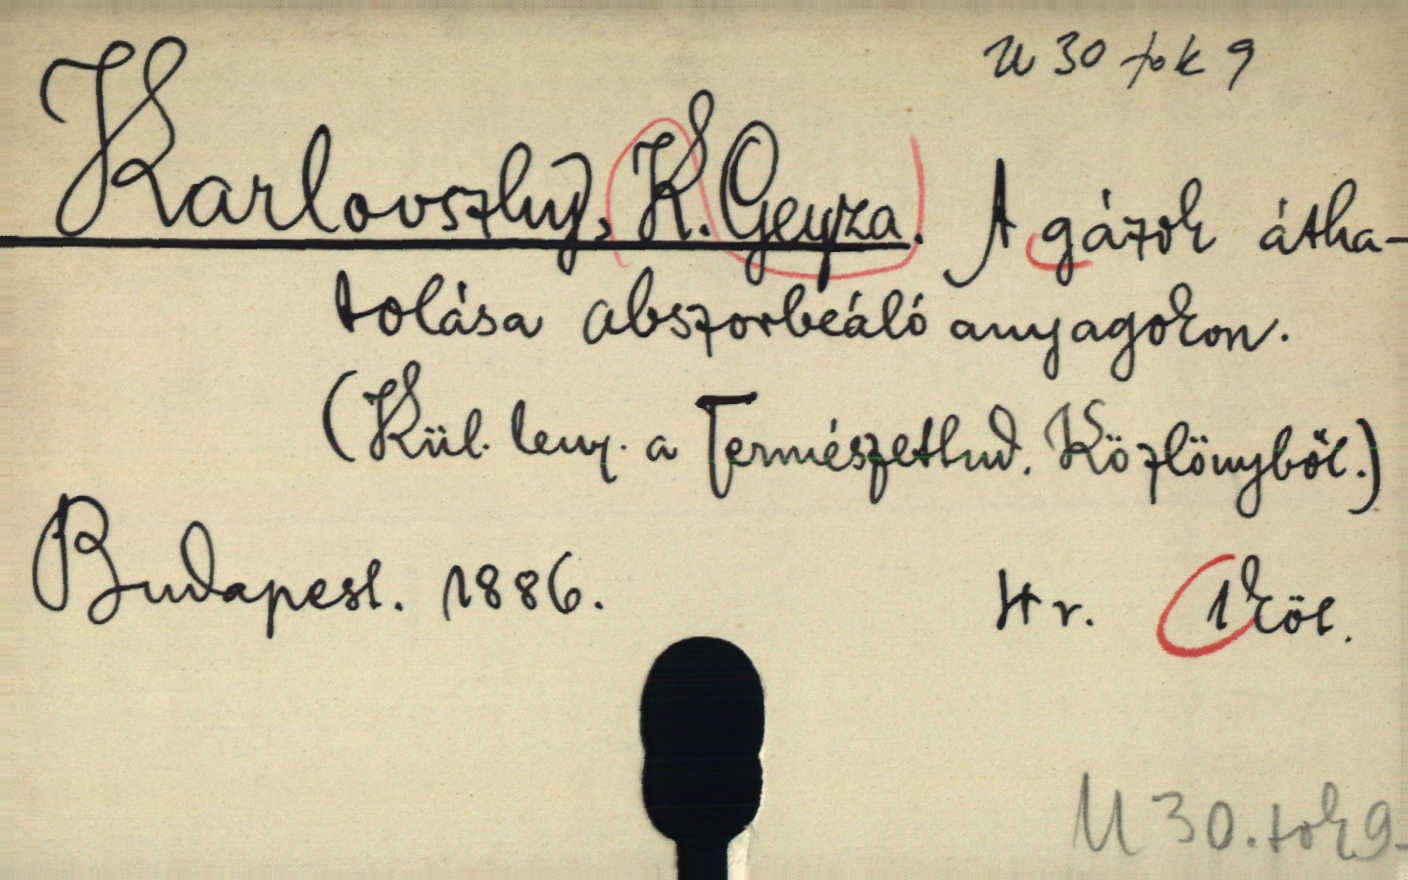 U 30 tok 9
Karlovszky, K. Geyza. A gázok átha-
tolása abszorbeáló anyagokon.
(Kül. leny. a Természettud. Közlönyből.)
Budapest. 1886.
Hr. 1 köt.
U 30. tok 9.